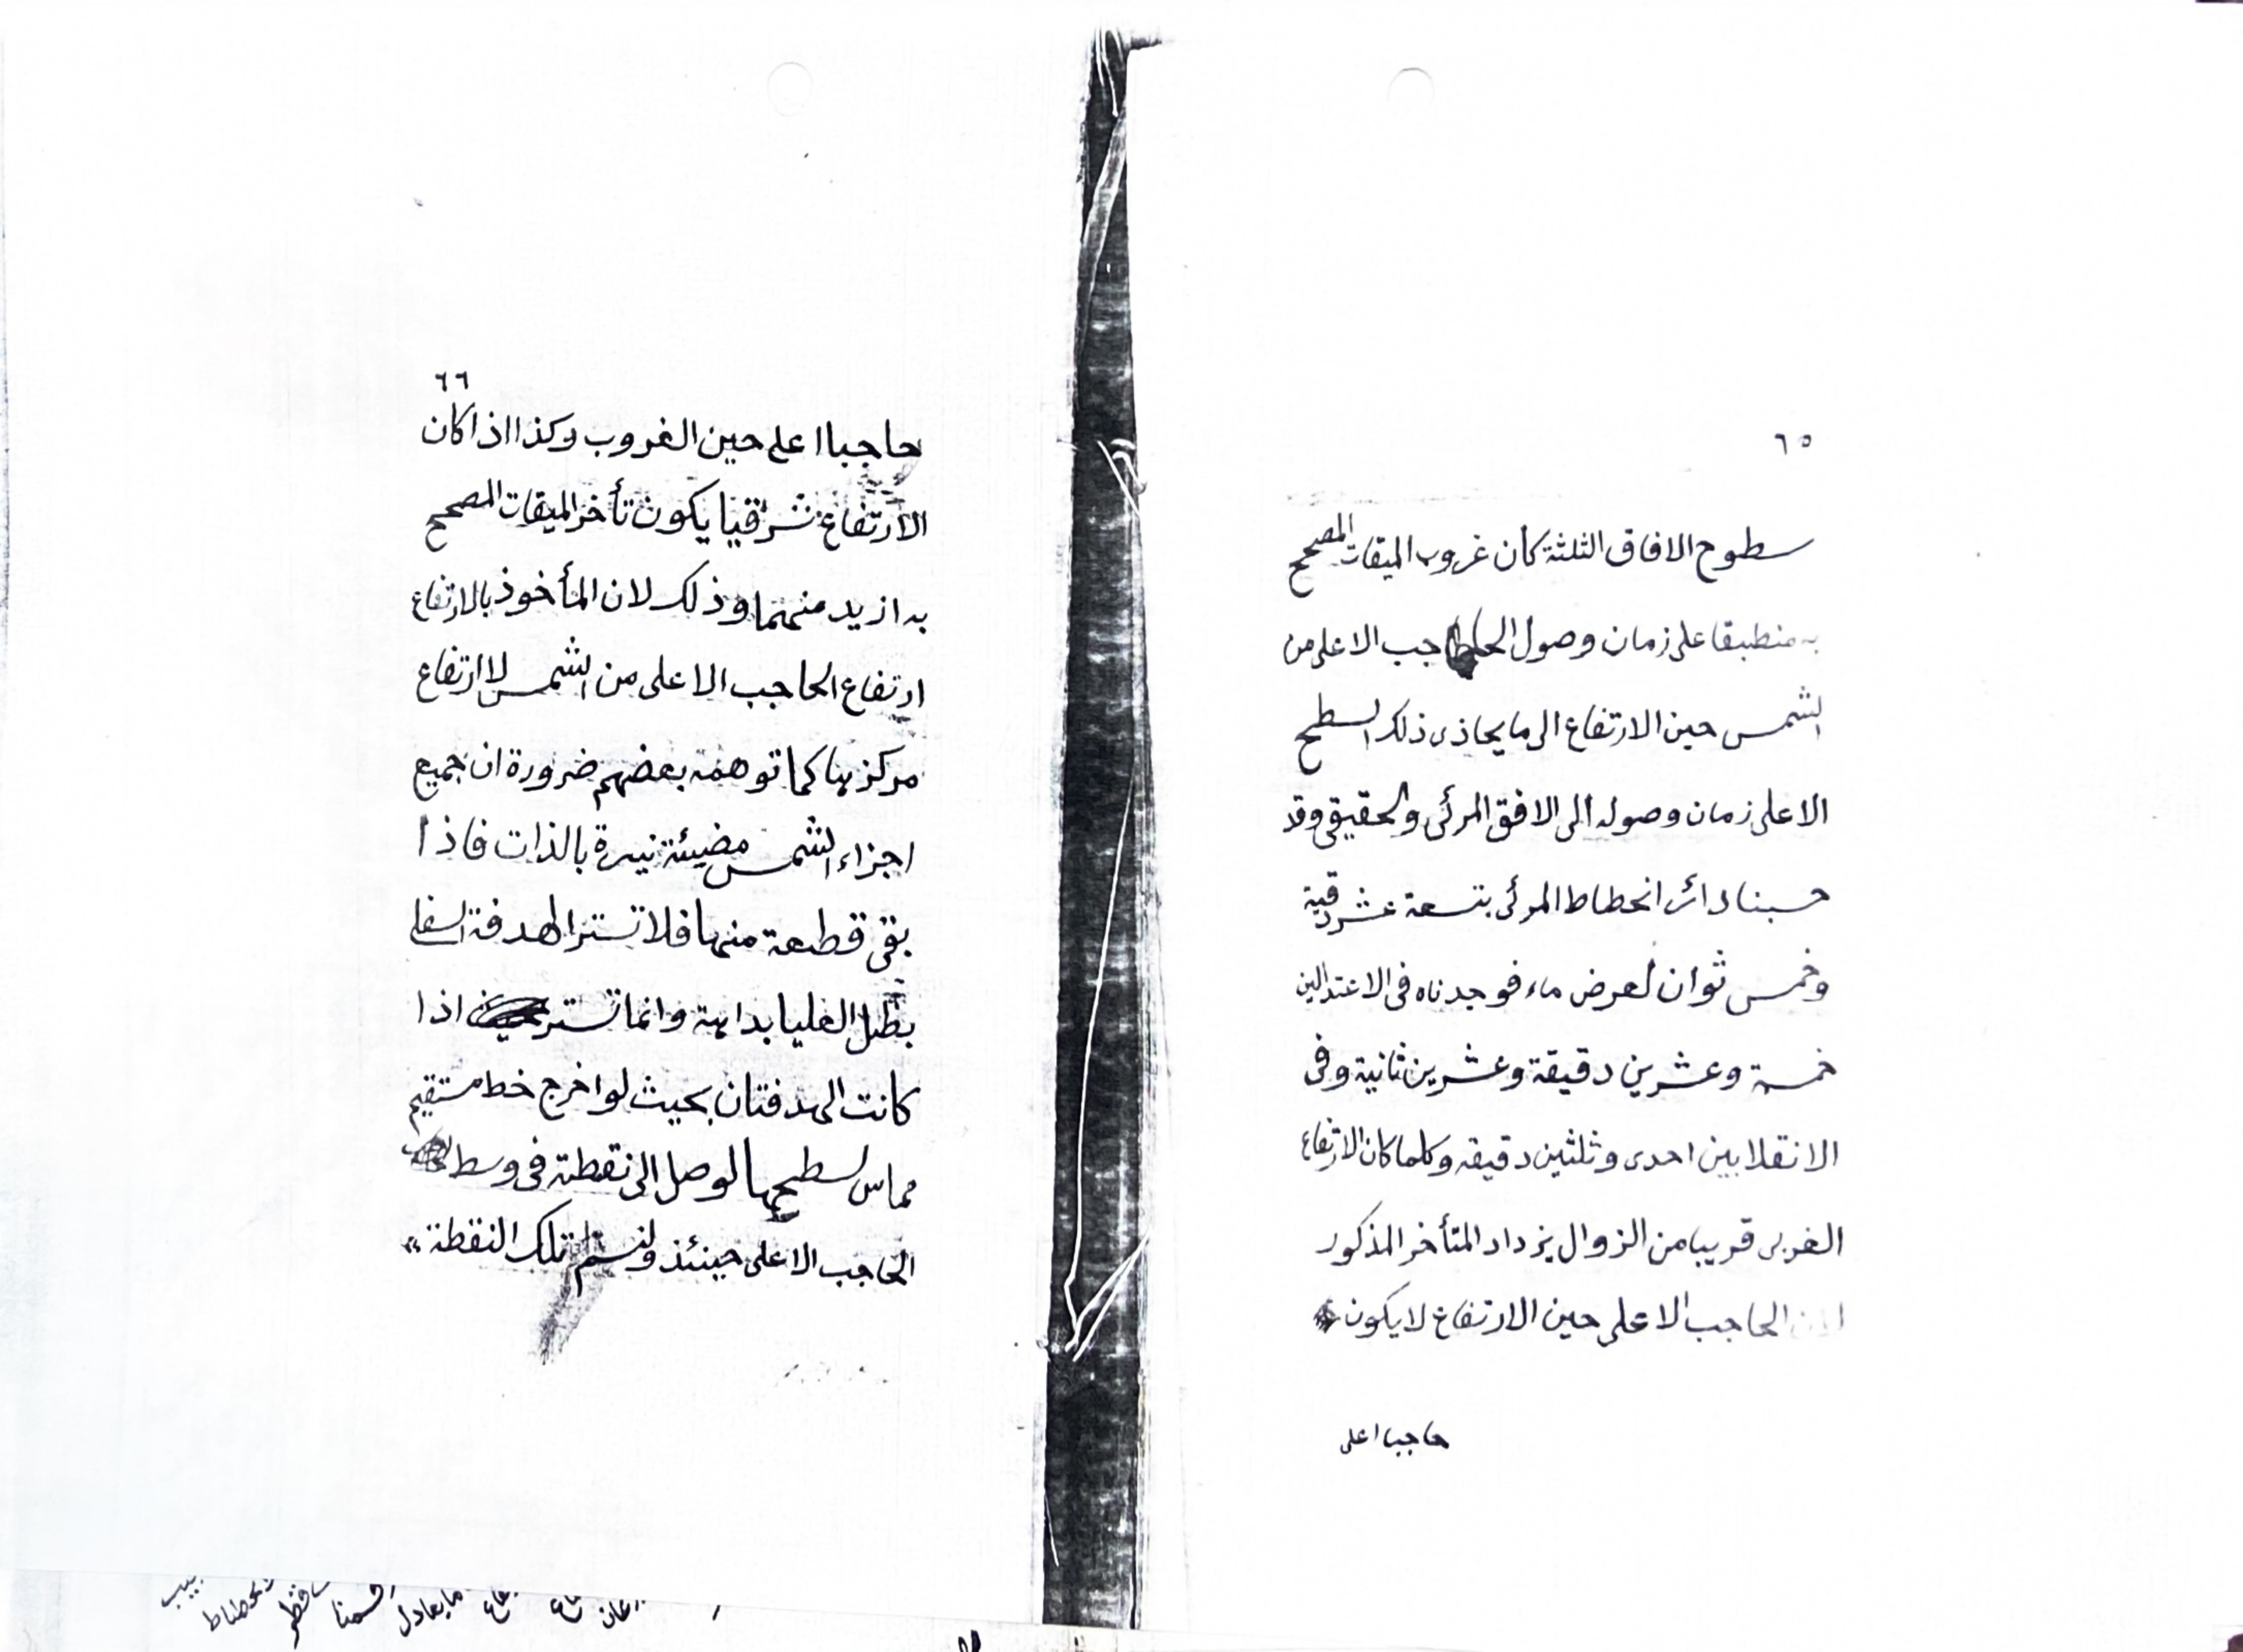 ٦٥
سطوح الافاق الثلثة كان غروب الميقات المصحح
به منطبقا على زمان وصول الحاجب الاعلى من
الشمس حين الارتفاع الى ما يحاذى ذلك السطح
الاعلى زمان وصوله الى الافق المرئى والحقيقى وقد
حسبنا دائر انحطاط المرئى بتسعة عشر دقيقة
وخمس ثوان لعرض ماء فوجدناه فى الاعتدالين
خمسة وعشرين دقيقة وعشرين ثانية وفى
الانقلابين احدى وثلثين دقيقه وكلما كان الارتفاع
الغربى قريبا من الزوال يزداد المتأخر المذكور
لان الحاجب الاعلى حين الارتفاع لا يكون
حاجبا اعلى
٦٦
حاجبا اعلى حين الغروب وكذا اذا كان
الارتفاع شرقيا يكون تأخر الميقات المصحح
به ازيد منهما وذلك لان المأخوذ بالارتفاع
ارتفاع الحاجب الاعلى من الشمس لا ارتفاع
مركزها كما توهمه بعضهم ضرورة ان جميع
اجزاء الشمس مضيئة نيرة بالذات فاذا
بقى قطعة منها فلا تستر الهدفة السفلى
بظل العليا بداهة وانما تستر اذا
كانت الهدفتان بحيث لو اخرج خط مستقيم
مماس لسطحها لوصل الى نقطة فى وسط
الحاجب الاعلى حينئذ ولنسم تلك النقطة
مايعادل
قسمنا